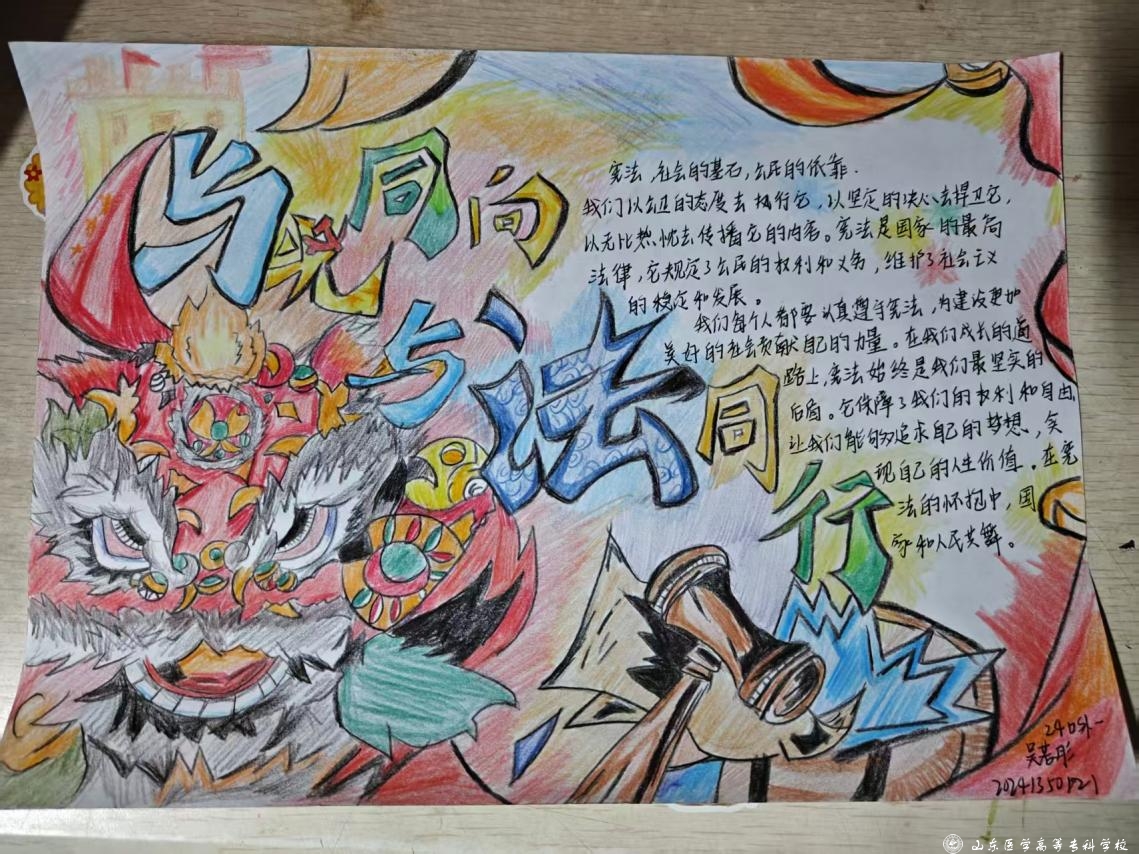 与宪同向
与法同行
宪法,社会的基石,公民的依靠.
我们以公正的态度去执行它,以坚定的决心去捍卫它,
以无比热忱去传播它的内容。宪法是国家的最高
法律,它规定了公民的权利和义务,维护了社会主义
的稳定和发展。
我们每个人都要认真遵守宪法,为建设更加
美好的社会贡献自己的力量。在我们成长的道
路上,宪法始终是我们最坚实的
后盾。它保障了我们的权利和自由,
让我们能够追求自己的梦想,实
现自己的人生价值。在宪
法的怀抱中,国
家和人民共舞。
吴若彤
山东医学高等专科学校